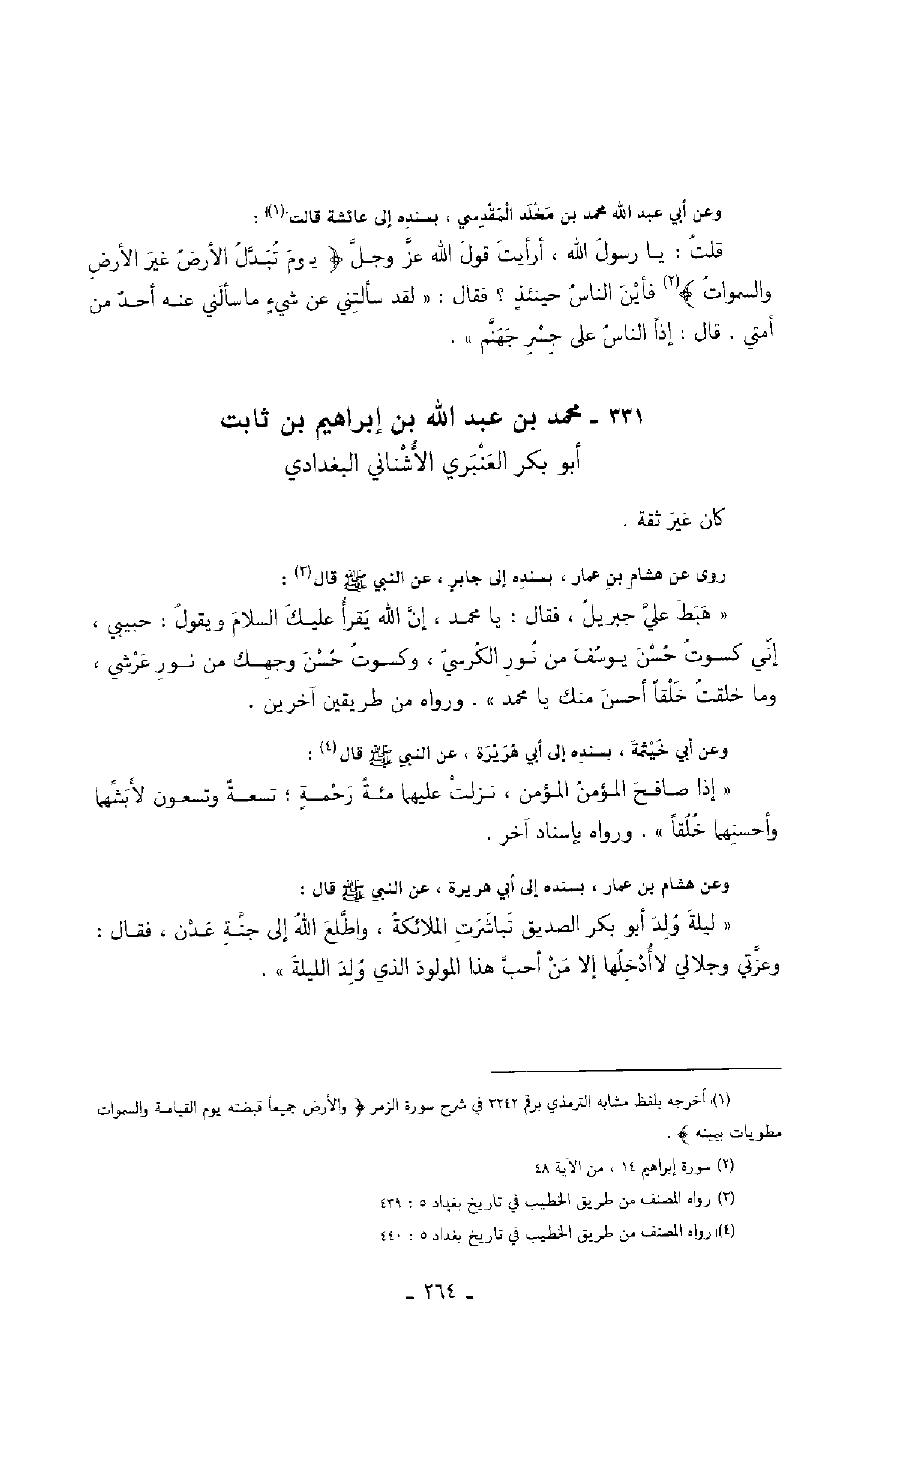 وعن أبي عبد الله محمد بن مَخْلَد المَقْدِسي ، بسنده إلى عائشة قالت(١) :
قلتُ : يا رسولَ الله ، أرأيتَ قولَ الله عزَّ وجلَّ ﴿ يومَ تُبَدَّلُ الأرضُ غيرَ الأرضِ
والسمواتُ ﴾(٢) فأيْنَ الناسُ حينئذٍ ؟ فقال : « لقد سألتِني عن شيءٍ ماسألني عنه أحدٌ من
أمتي . قال : إذاً الناسُ على جِسْرِ جَهَنَّم » .
٣٣١ ـ محمد بن عبد الله بن إبراهيم بن ثابت
أبو بكر العَنْبَري الأُشْناني البغدادي
كان غيرَ ثقة .
روى عن هشامِ بنِ عمار ، بسندِه إلى جابرٍ ، عن النبي ﷺ قال(٣) :
« هَبَطَ عليَّ جبريلُ ، فقال : يا محمد ، إنَّ الله يَقرأُ عليكَ السلامَ ويقولُ : حبيبي ،
إنِّي كسوتُ حُسْنَ يوسُفَ من نُورِ الكُرسيّ ، وكسوتُ حُسْنَ وجهِك من نورِ عَرْشي ،
وما خلقتُ خَلْقاً أحسنَ منك يا محمد » . ورواه من طريقين آخرين .
وعن أبي خَيْثَمَةَ ، بسندِه إلى أبي هُرَيْرَة ، عن النبي ﷺ قال(٤) :
« إذا صافحَ المؤمنُ المؤمن ، نزلتْ عليها مئةُ رَحْمةٍ ؛ تسعةٌ وتسعون لأَبَشِّها
وأحسنِها خُلُقاً » . ورواه بإسناد آخر .
وعن هشام بن عمار ، بسنده إلى أبي هريرة ، عن النبي ﷺ قال :
« ليلةَ وُلِدَ أبو بكر الصديق تَباشَرَتِ الملائكةُ ، واطَّلعَ اللهُ إلى جنَّةِ عَدْن ، فقال :
وعزَّتي وجلالي لاأُدْخِلُها إلا مَنْ أحبَّ هذا المولودَ الذي وُلِدَ الليلةَ » .
(١) أخرجه بلفظ مشابه الترمذي برقم ٣٢٤٢ في شرح سورة الزمر ﴿ والأرض جميعاً قبضته يوم القيامة والسموات
مطويات بيمينه ﴾ .
(٢) سورة إبراهيم ١٤ ، من الآية ٤٨
(٣) رواه المصنف من طريق الخطيب في تاريخ بغداد ٥ : ٤٣٩
(٤) رواه المصنف من طريق الخطيب في تاريخ بغداد ٥ : ٤٤٠
ـ ٢٦٤ ـ